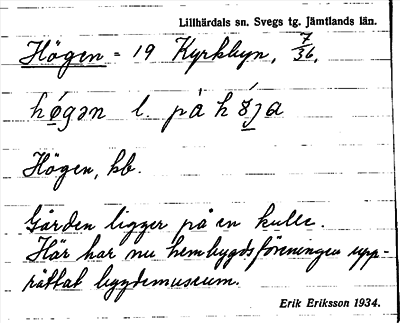 Lillhärdals sn. Svegs tg. Jämtlands län.
Högen = 19 Kyrkbyn, 7/36.
hǫ́gən l. på h ǫ́ʒa
Högen, kb.
Gården ligger på en kulle.
Här har nu hembygdsföreningen upp-
rättat bygdemuseum.
Erik Eriksson 1934.